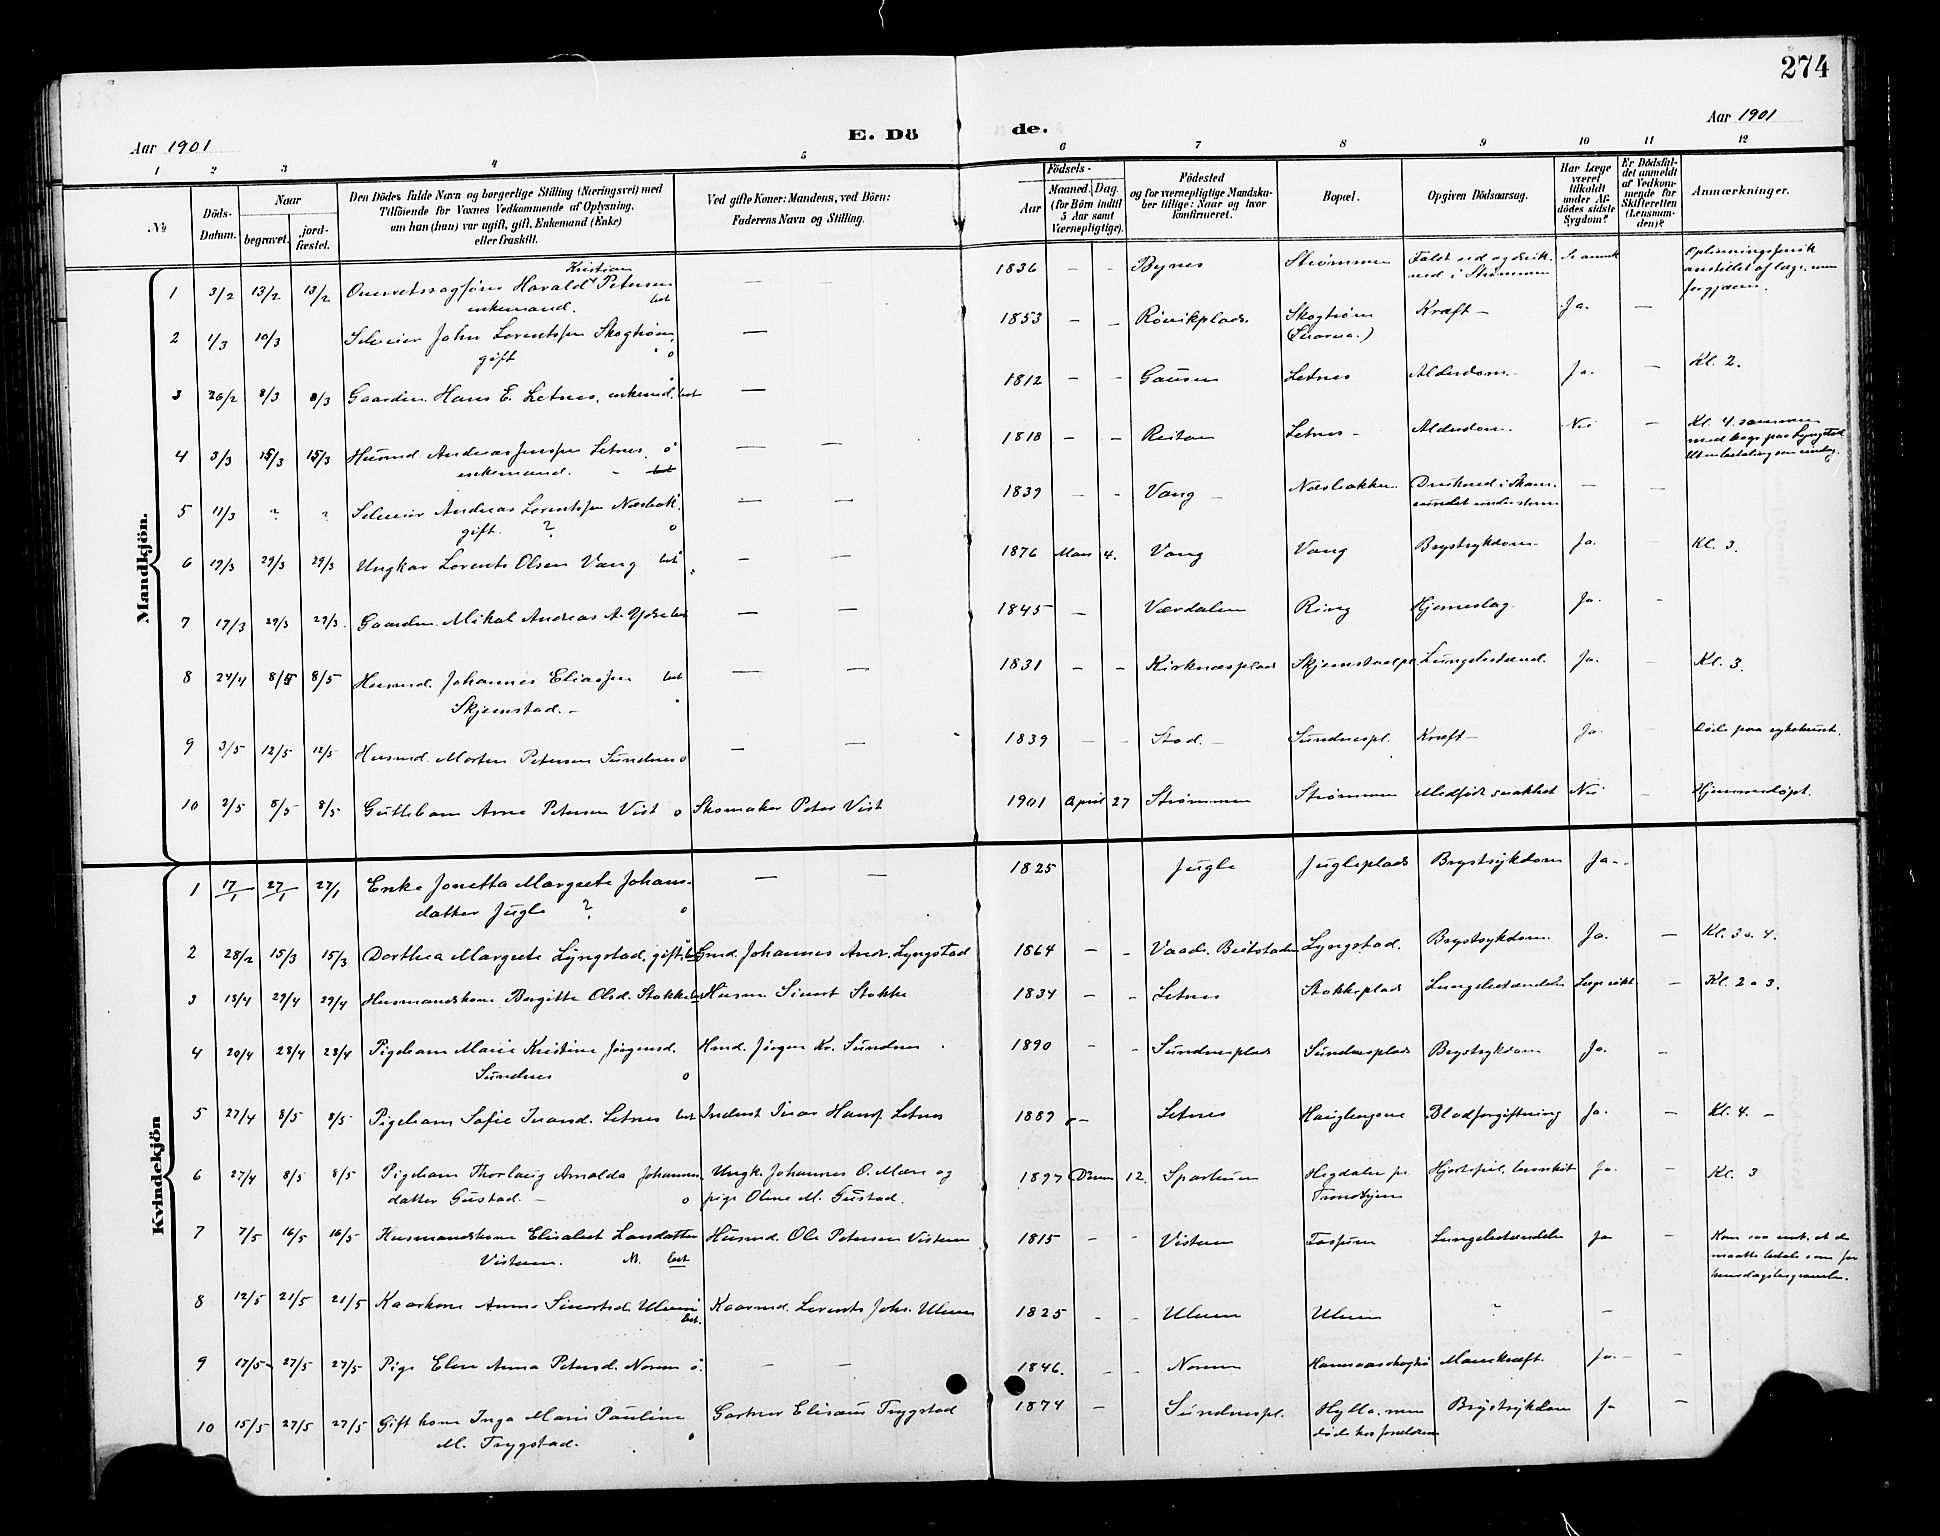 274
Aar 1901
E. Dö de.
Aar 1901
1 2 3 4 5 6 7 8 9 10 11 12
№
Döds-Datum.
Naar
begravet.
jord-fæstet.
Den Dödes fulde Navn og borgerlige Stilling (Næringsvei) med
Tilföiende for Voxnes Vedkommende af Oplysning,
om han (hun) var ugift, gift, Enkemand (Enke)
eller fraskilt.
Ved gifte Koner: Mandens, ved Börn:
Faderens Navn og Stilling.
Födsels-
Aar
Maaned. Dag.
(for Börn indtil
5 Aar samt
Værnepligtige).
Födested
og for værnepligtige Mandska-
ber tillige: Naar og hvor
konfirmeret.
Bopæl.
Opgiven Dödsaarsag.
Har Læge
været
tilkaldt
under Af-
dödes sidste
Sygdom?
Er Dödsfal-
det anmeldt
af Vedkom-
mende for
Skifteretten
(Lensman-
den)?
Anmærkninger.
Mandkjön.
1 3/2 13/2 13/2 Overretssagfører Harald Kristian Petersen enkemand. — — 1836 – – Bynes Strømmen Faldt ned og ned i Strømmen Se anmk
2 1/3 10/3 Selveier John Lorentssen Skogheim gift — 1853 – – Rønikplads Skogheim Kræft – Ja. —
3 26/2 8/3 8/3 Gaardm. Hans E. Letnes, enkemd. — 1812 – – Gausen Letnes Alderdom – Ja. — Kl. 2.
4 3/3 15/3 15/3 Husmd. Andreas Jenssen Letnes enkemand. — — 1818 – – Reitan Letnes – Alderdom. Nei — Kl. 4 sammen med paa Lyngstad
5 11/3 ? ? Selveier Andreas Lorentssen Næsbak. gift. ? — — 1839 – – Vang – Næsbakken Drukned i Skarnsundet under storm – —
6 19/3 29/3 29/3 Ungkar Lorents Olsen Vang – – 1876 Mars 4. Vang Vang Brystsykdom Ja. Kl. 3.
7 17/3 29/3 29/3. Gaardm. Mikal Andreas A. Ydse — — 1845 – Værdalen Ring Hjerneslag. Ja. –
8 24/4 8/5 8/5 Husmd. Johannes Eliassen Skjemstad. – — — 1831 – – Kirknæsplads Skjemstadpl. Lungebetænd. Ja. Kl. 3.
9 3/5 12/5 12/5 Husmd. Morten Petersen Sundnes — — 1839 – – Stod. – Sundnespl. Kræft – Ja. – Døde paa sykehuset.
10 2/5 8/5 8/5 Guttebarn Arne Petersen Vist Skomaker Peter Vist 1901 April 27 Strømmen Strømmen Medfødt svakhet Nei – Hjemmedøpt.
Kvindekjön
1 17/1 27/1 27/1 Enke Jonetta Margrete Johansdatter Jugle ? — — 1825 Jugle Jugleplads Brystsykdom Ja. –
2 28/2 15/3 15/3 Dorthea Margrete Lyngstad, gift Gmd. Johannes Andr. Lyngstad 1864 – – Vaade. Beitstaden Lyngstad. Brystsykdom. Ja. – Kl. 3 o. 4.
3 18/4 29/4 29/4 Husmandskone Bergitte Olsd. Stokke Husm. Sivert Stokke 1834 – – Letnes Stokkeplads Lungebetændelse – Kl. 2 o 3.
4 20/4 28/4 28/4 Pigebarn Marie Kristine Jørgensd. Sundnes Hmd. Jørgen Kr. Sundnes 1890 – – Sundnesplads Sundnesplads Brystsykdom Ja. –
5 27/4 8/5 8/5 Pigebarn Sofie Ivarsd. Letnes Inderst Ivar Hanss Letnes 1889 – Letnes Haugbergene Blodforgiftning Ja. – Kl. 4. –
6 27/4 8/5 8/5 Pigebarn Thorlaug Arnolda Johannesdatter Gustad. – Ungk. Johannes O. Mære og pige Oline M. Gustad. 1897 12. Sparbuen Høgdalen pr. Trondhjem bronkit Ja. – Kl. 3
7 7/5 16/5 16/5 Husmandskone Elisabet Larsdatter Vistven. Husmd. Ole Petersen Vistven 1815 – – Vistven Lungebetændelse Ja – Kom saa sent, at de maatte betale som for
8 12/5 21/5 21/5 Kaarkone Anna Sivertsd. Ulven Kaarmd. Lorents Joh. Ulven 1825 – – Ulven Ulven –
9 17/5 27/5 27/5 Pige Elen Anna Petersd. Norum — — 1846. – – Norum Mavekræft. Ja. – –
10 15/5 27/5 27/5 Gift kone Inga Marie Pauline M. Trygstad. Gartner Elisæus Trygstad 1874 – Sundnespl. Hylla, men døde hos forældrene Brystsykdom Ja –